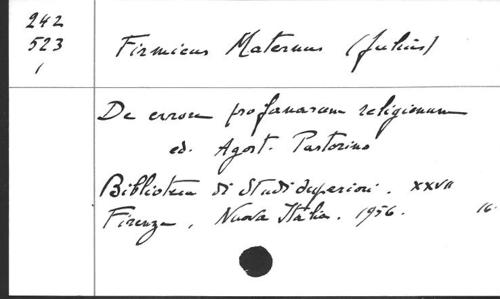 242
523
1
Firmicus Maternus (Julius)
De errore profanarum religionum
ed. Agost. Pastorino
Biblioteca di Studi superiori. XXVII
Firenze, Nuova Italia. 1956. 16.